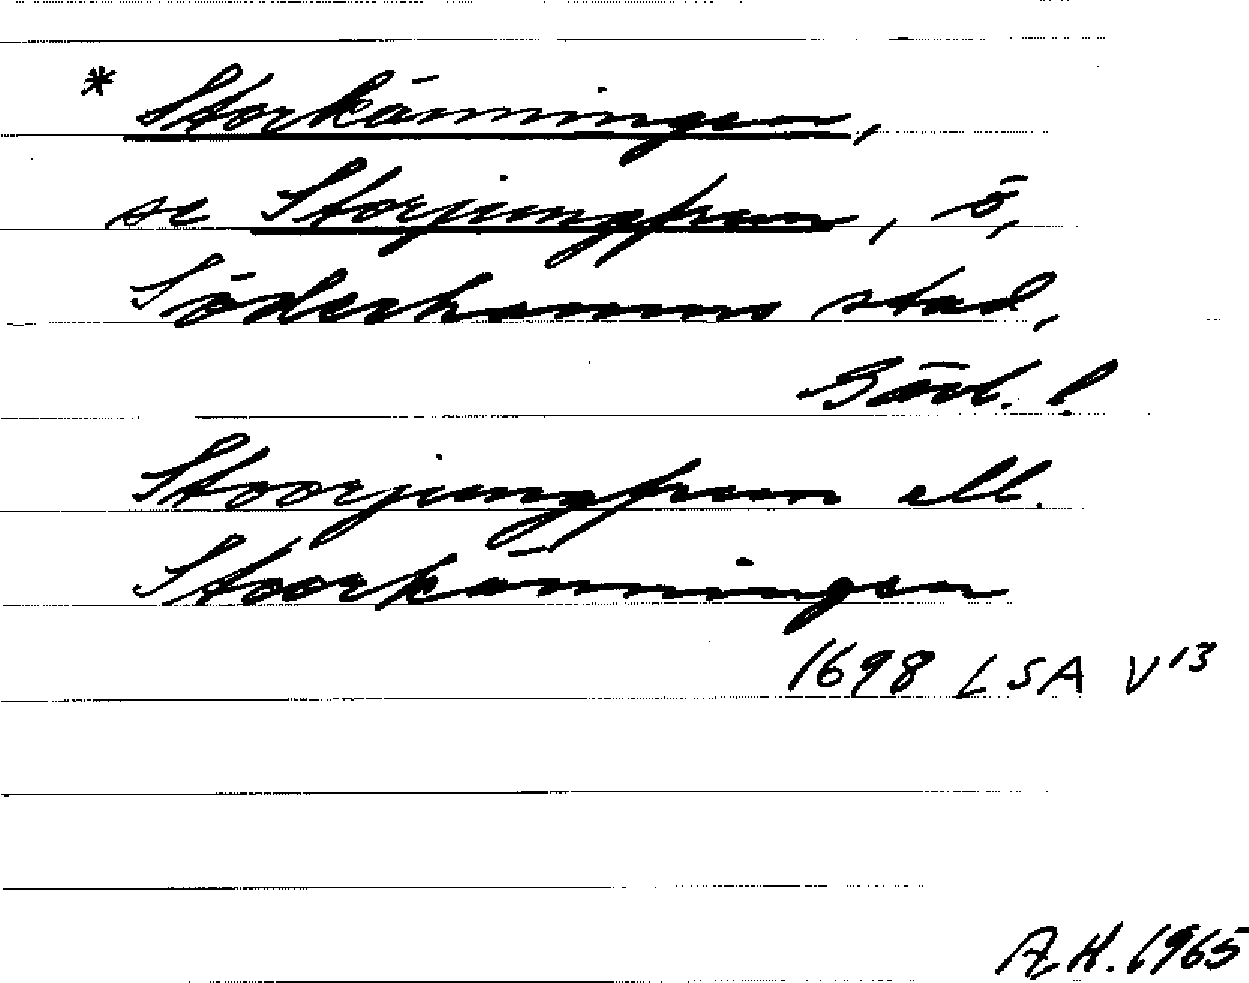 * Storkänningen,
se Storjungfrun, ö,
Söderhamns stad,
Gävl. l.
Stoorjungfrun ell.
Stoorkänningen
1698 LSA V¹³
A.H. 1965